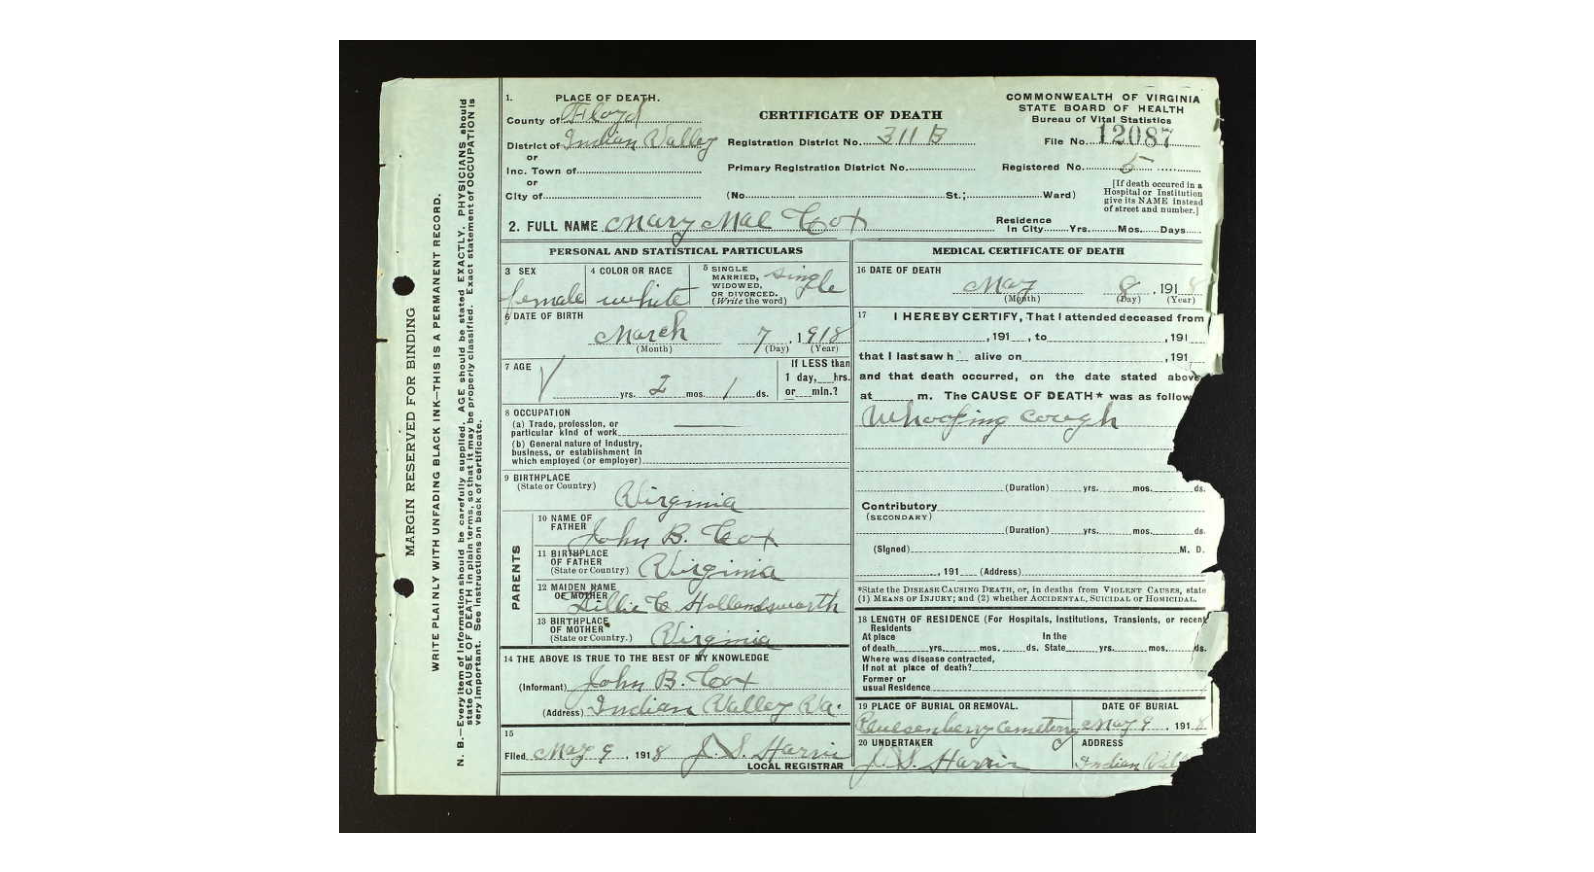 MARGIN RESERVED FOR BINDING
WRITE PLAINLY WITH UNFADING BLACK INK—THIS IS A PERMANENT RECORD.
N. B.—Every item of information should be carefully supplied. AGE should be stated EXACTLY. PHYSICIANS should
state CAUSE OF DEATH in plain terms, so that it may be properly classified. Exact statement of OCCUPATION is
very important. See instructions on back of certificate.
1. PLACE OF DEATH.
County of Floyd
District of Indian Valley
or
Inc. Town of
or
City of
CERTIFICATE OF DEATH
Registration District No. 311 B
Primary Registration District No.
(No. St.; Ward)
COMMONWEALTH OF VIRGINIA
STATE BOARD OF HEALTH
Bureau of Vital Statistics
File No. 12087
Registered No. 5
[If death occured in a
Hospital or Institution
give its NAME instead
of street and number.]
2. FULL NAME Mary Mae Cox
Residence
In City Yrs. Mos. Days
PERSONAL AND STATISTICAL PARTICULARS
3 SEX
female
4 COLOR OR RACE
white
5 SINGLE
MARRIED,
WIDOWED,
OR DIVORCED.
(Write the word)
single
6 DATE OF BIRTH
March 7, 1918
(Month) (Day) (Year)
7 AGE
yrs. 2 mos. 1 ds.
If LESS than
1 day, hrs.
or min.?
8 OCCUPATION
(a) Trade, profession, or
particular kind of work
(b) General nature of industry,
business, or establishment in
which employed (or employer)
9 BIRTHPLACE
(State or Country)
Virginia
PARENTS
10 NAME OF
FATHER
John B. Cox
11 BIRTHPLACE
OF FATHER
(State or Country) Virginia
12 MAIDEN NAME
OF MOTHER
Lillie C Hollandsworth
13 BIRTHPLACE
OF MOTHER
(State or Country.) Virginia
14 THE ABOVE IS TRUE TO THE BEST OF MY KNOWLEDGE
(Informant) John B. Cox
(Address) Indian Valley Va.
15
Filed May 9, 1918 J. S. Harris
LOCAL REGISTRAR
MEDICAL CERTIFICATE OF DEATH
16 DATE OF DEATH
May 8, 1918
(Month) (Day) (Year)
17 I HEREBY CERTIFY, That I attended deceased from
, 191 , to , 191
that I last saw h alive on , 191
and that death occurred, on the date stated above
at m. The CAUSE OF DEATH* was as follow
Whooping cough
(Duration) yrs. mos. ds.
Contributory
(SECONDARY)
(Duration) yrs. mos. ds.
(Signed) M. D.
, 191 (Address)
*State the DISEASE CAUSING DEATH, or, in deaths from VIOLENT CAUSES, state
(1) MEANS OF INJURY; and (2) whether ACCIDENTAL, SUICIDAL or HOMICIDAL.
18 LENGTH OF RESIDENCE (For Hospitals, Institutions, Transients, or recent
Residents
At place In the
of death yrs. mos. ds. State yrs. mos. ds.
Where was disease contracted,
If not at place of death?
Former or
usual Residence
19 PLACE OF BURIAL OR REMOVAL.
Quesenberry Cemetery
DATE OF BURIAL
May 9, 1918
20 UNDERTAKER
J. S. Harris
ADDRESS
Indian